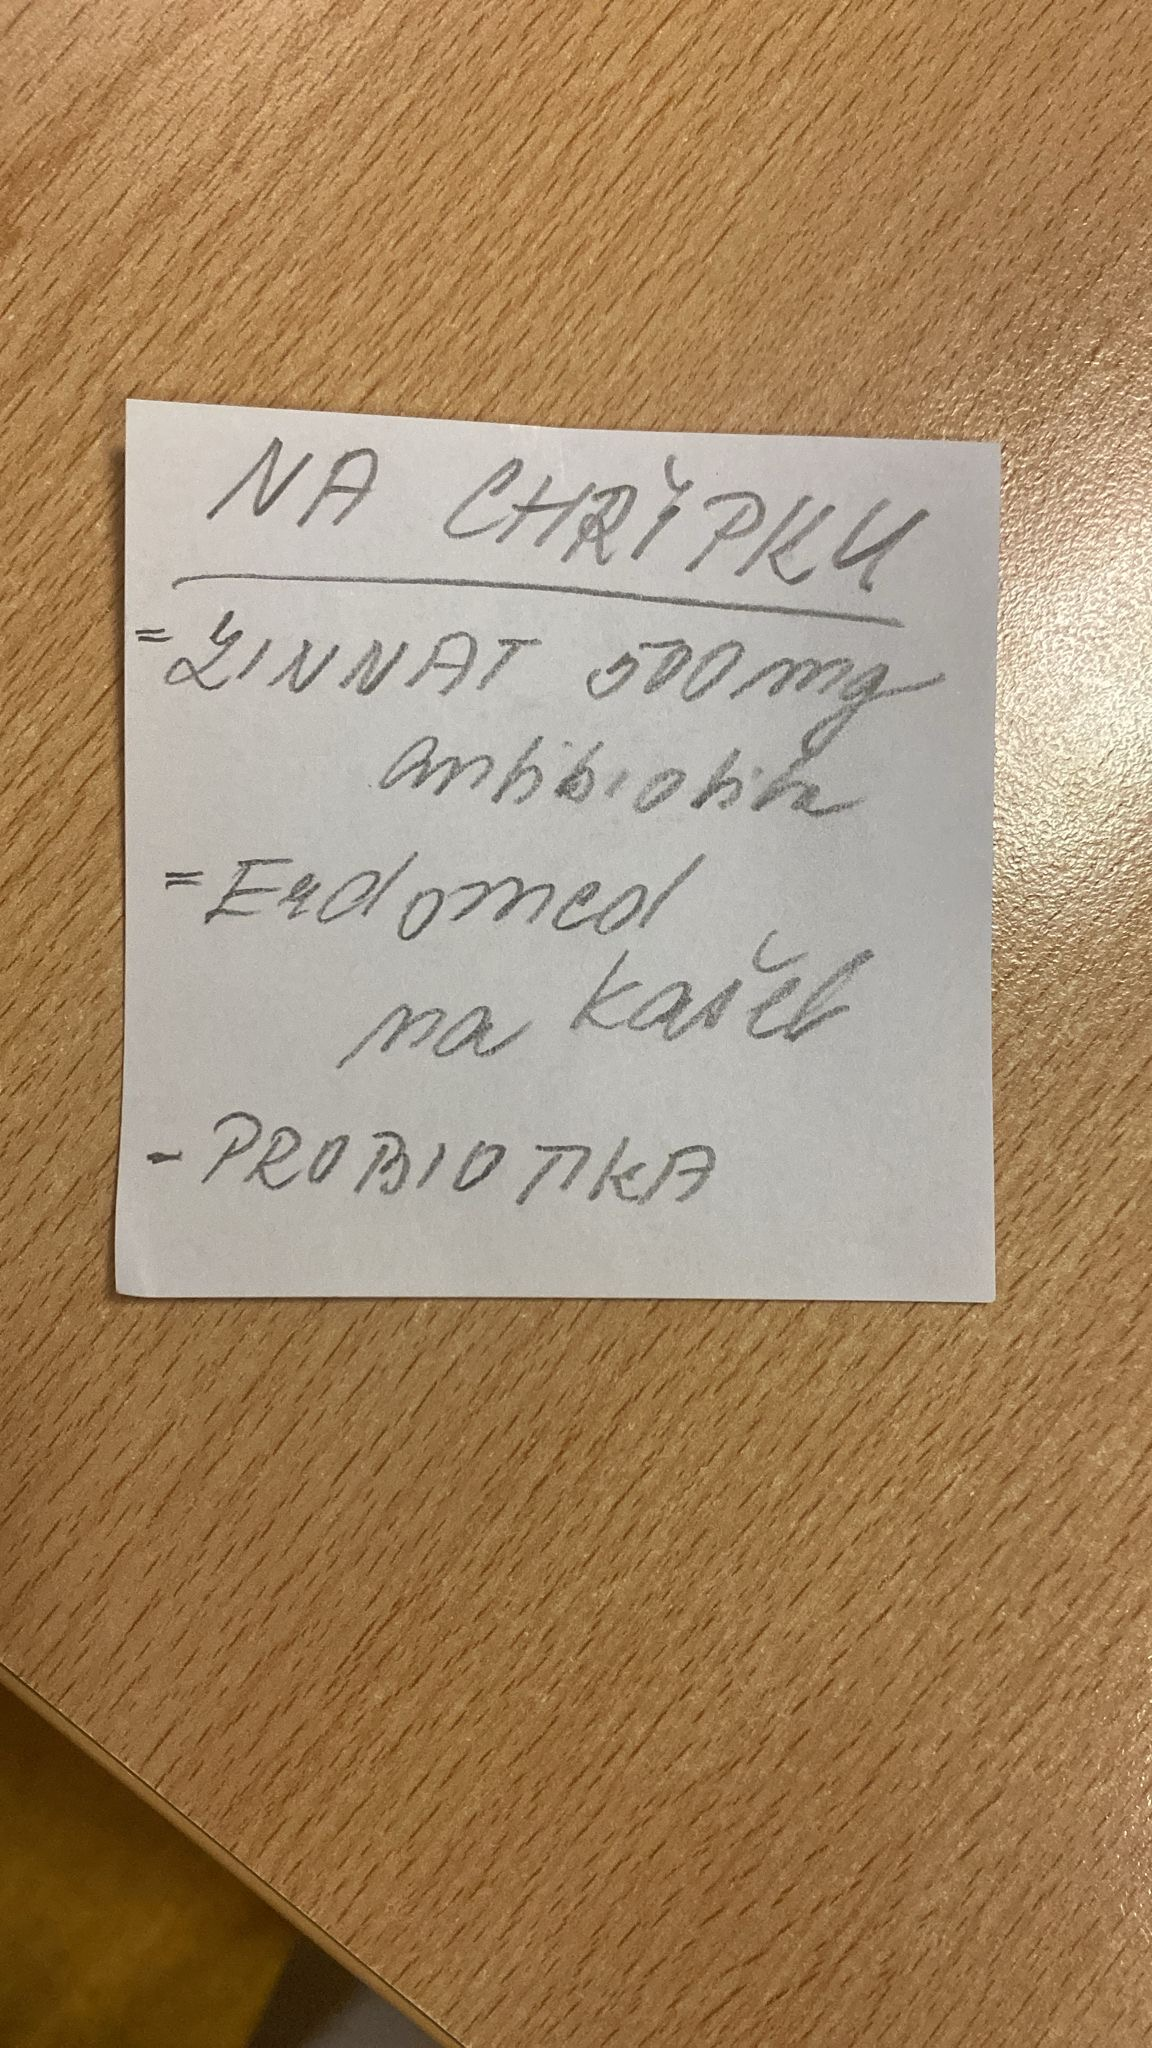 NA CHŘÍPKU
= ZINNAT 500mg
antibiotika
= Erdomed
na kašel
- PROBIOTIKA